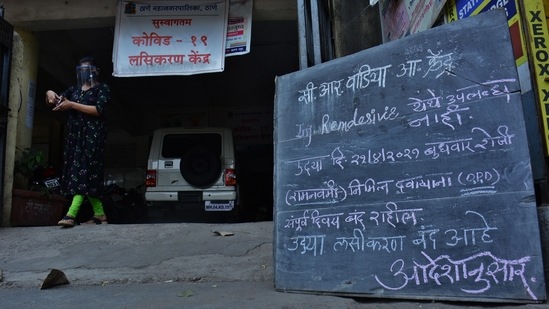 ठाणे महानगरपालिका, ठाणे
सुस्वागतम
कोविड - १९
लसिकरण केंद्र
सी. आर. वाडिया आ. केंद्र
Inj. Remdesivir येथे उपलब्ध नाही.
उद्या दि. २१/४/२०२१ बुधवार रोजी
(रामनवमी) निमित्त दवाखाना (OPD)
संपूर्ण दिवस बंद राहील.
उद्या लसीकरण बंद आहे
आदेशानुसार.
XEROX